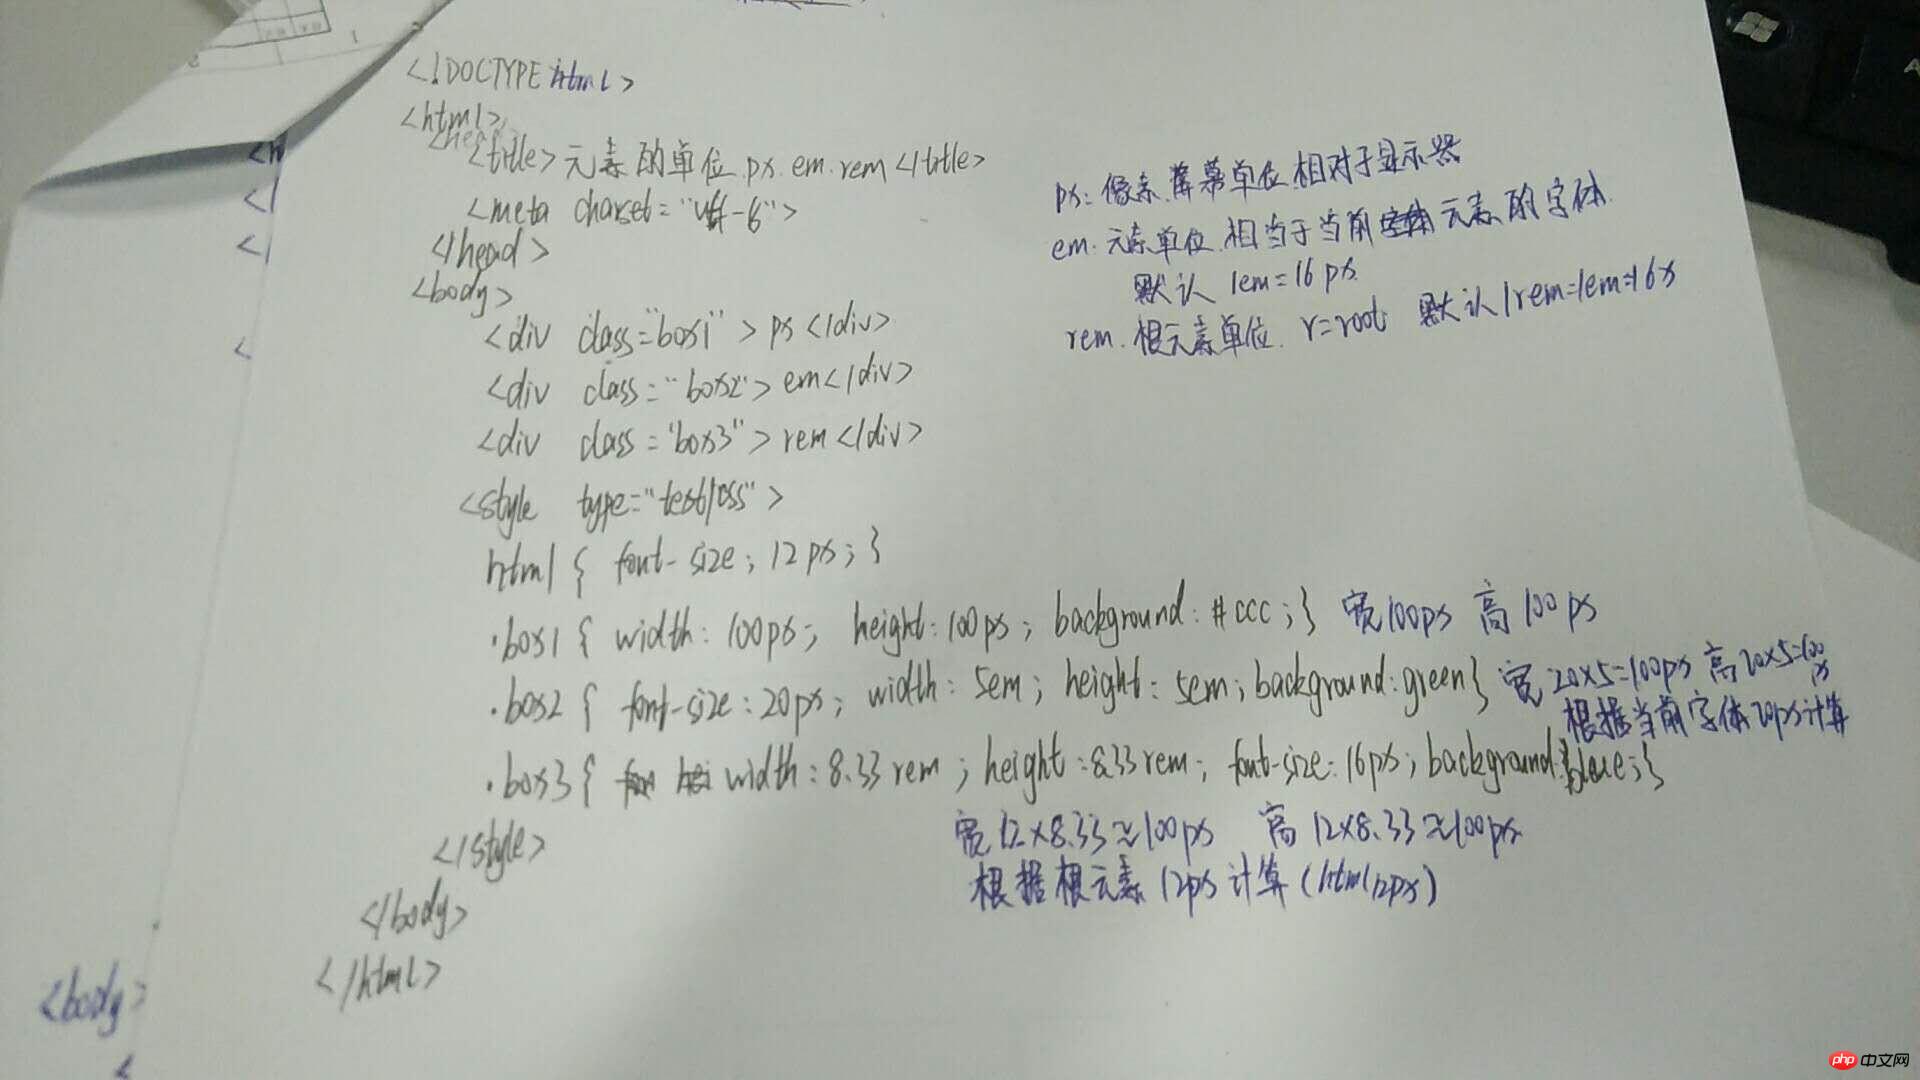 <!DOCTYPE html>
<html>
<head>
<title>元素的单位.px.em.rem</title>
<meta charset="utf-6">
</head>
<body>
<div class="box1">px</div>
<div class="box2">em</div>
<div class="box3">rem</div>
<style type="text/css">
html { font-size ; 12px ; }
.box1 { width : 100px ; height : 100px ; background : #ccc ; } 宽100px 高100px
.box2 { font-size : 20px ; width : 5em ; height : 5em ; background : green } 宽20x5=100px 高20x5=100px
根据当前字体20px计算
.box3 { width : 8.33 rem ; height : 8.33 rem ; font-size : 16px ; background : blue ; }
宽12x8.33≈100px 高12x8.33≈100px
根据根元素12px计算(html12px)
</style>
</body>
</html>
px: 像素.屏幕单位.相对于显示器
em. 元素单位.相当于当前元素的字体.
默认 1em=16px.
rem. 根元素单位. r=root. 默认1rem=1em=16x
<h
</
</
<
<body>
<
php 中文网